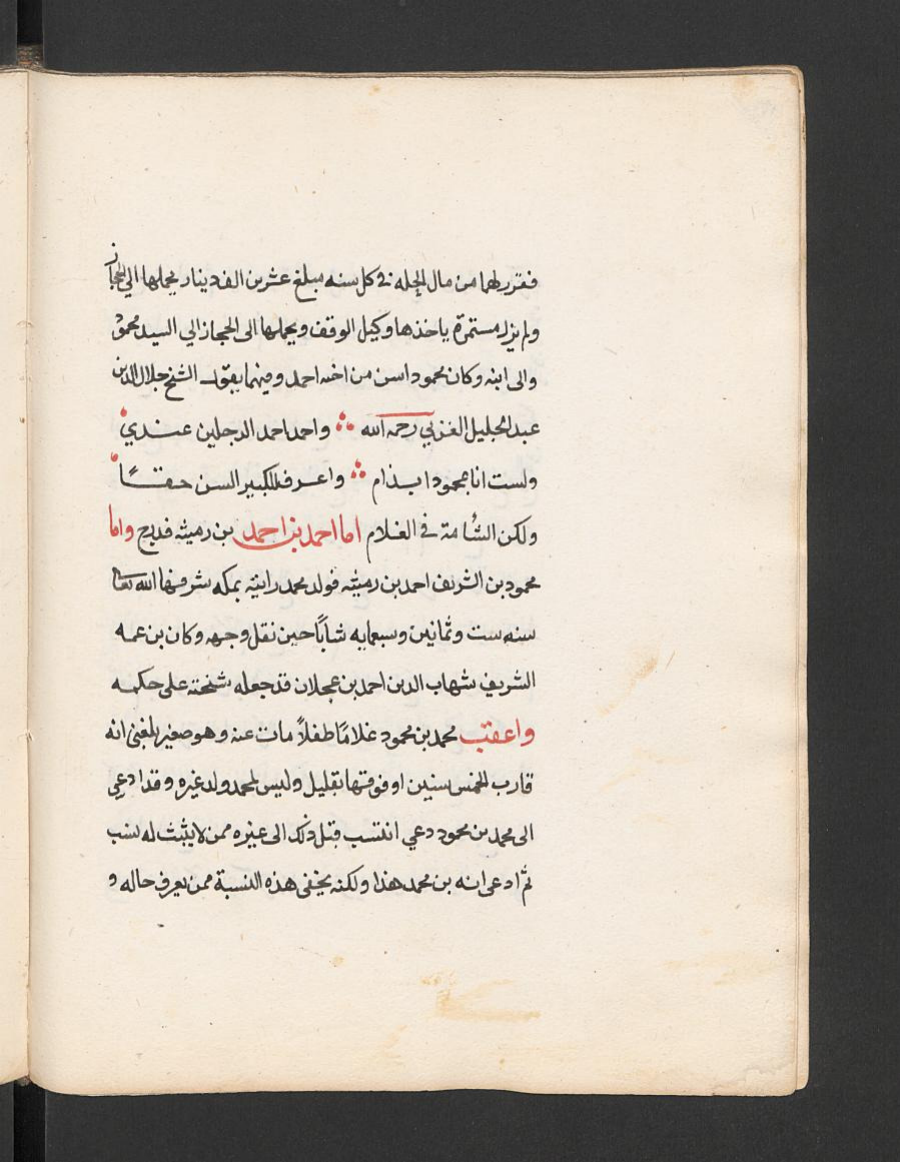 فقرر لهما من مال الحله في كل سنه مبلغ عشرين الف دينار يحملها الي الحجاز
ولم يزل مستمرة ياخذها وكيل الوقف ويحملها الى الحجاز الي السيد محمود
والى ابنه وكان محمود اسن من اخيه احمد وفيهما يقول الشيخ جلال الدين
عبد الجليل الغزي رحمه الله واحمد احمد الرجلين عندي
ولست انا لمحمود ابذام واعرف للكبير السن حقا
ولكن الشأمة في الغلام اما احمد بن احمد بن رميثه فدرج واما
محمود بن الشريف احمد بن رميثه فولد محمد رايته بمكه شرفها الله تعا
سنه ست وثمانين وسبعمايه شابا حين نقل وجهه وكان بن عمه
الشريف شهاب الدين احمد بن عجلان قد جعله على حكمه
واعقب محمد بن محمود غلامًا طفلاً مات عنه وهو صغير بلغني انه
قارب الخمس سنين او فوقها بقليل وليس لمحمد ولد غيره وقد ادعي
الى محمد بن محمود دعي انتسب قبل ذلك الى غيره ممن لا يثبت له نسب
ثم ادعى انه بن محمد هذا ولكنه يخفى هذه النسبة ممن يعرف حاله و